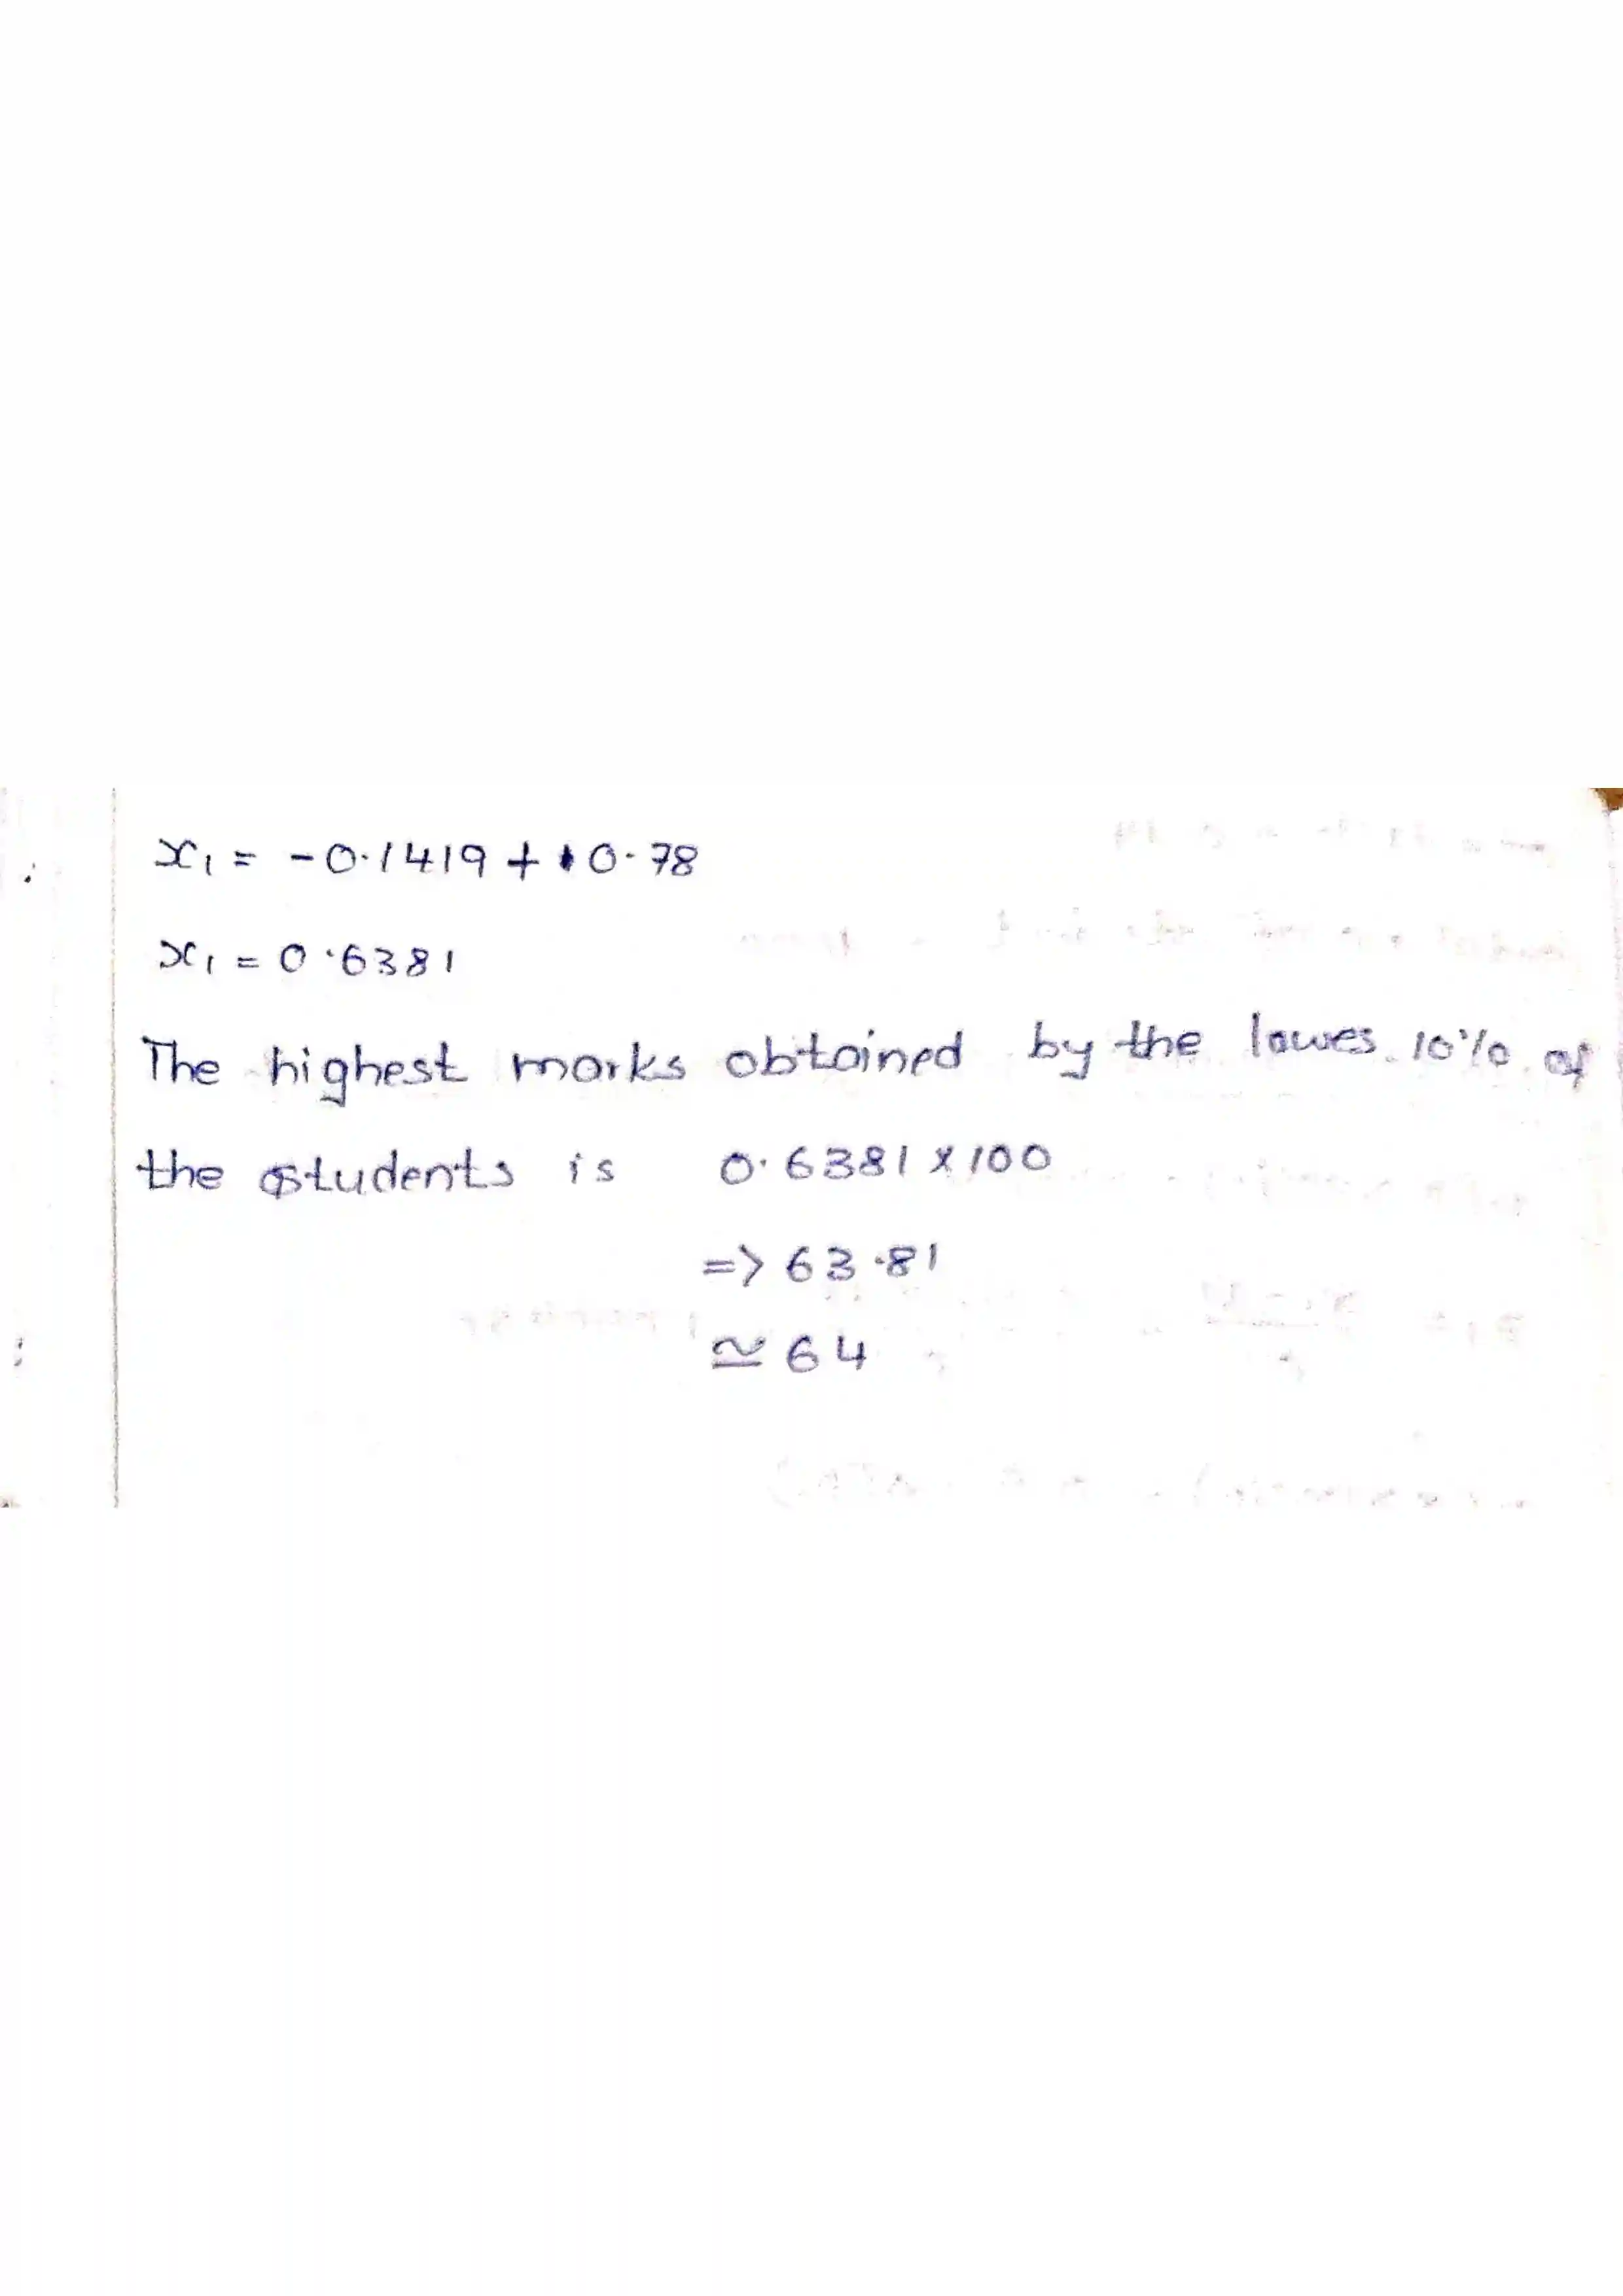 x₁ = -0.1419 + 0.78
x₁ = 0.6381
The highest marks obtained by the lowes 10% of
the students is 0.6381 x 100
=> 63.81
≅ 64